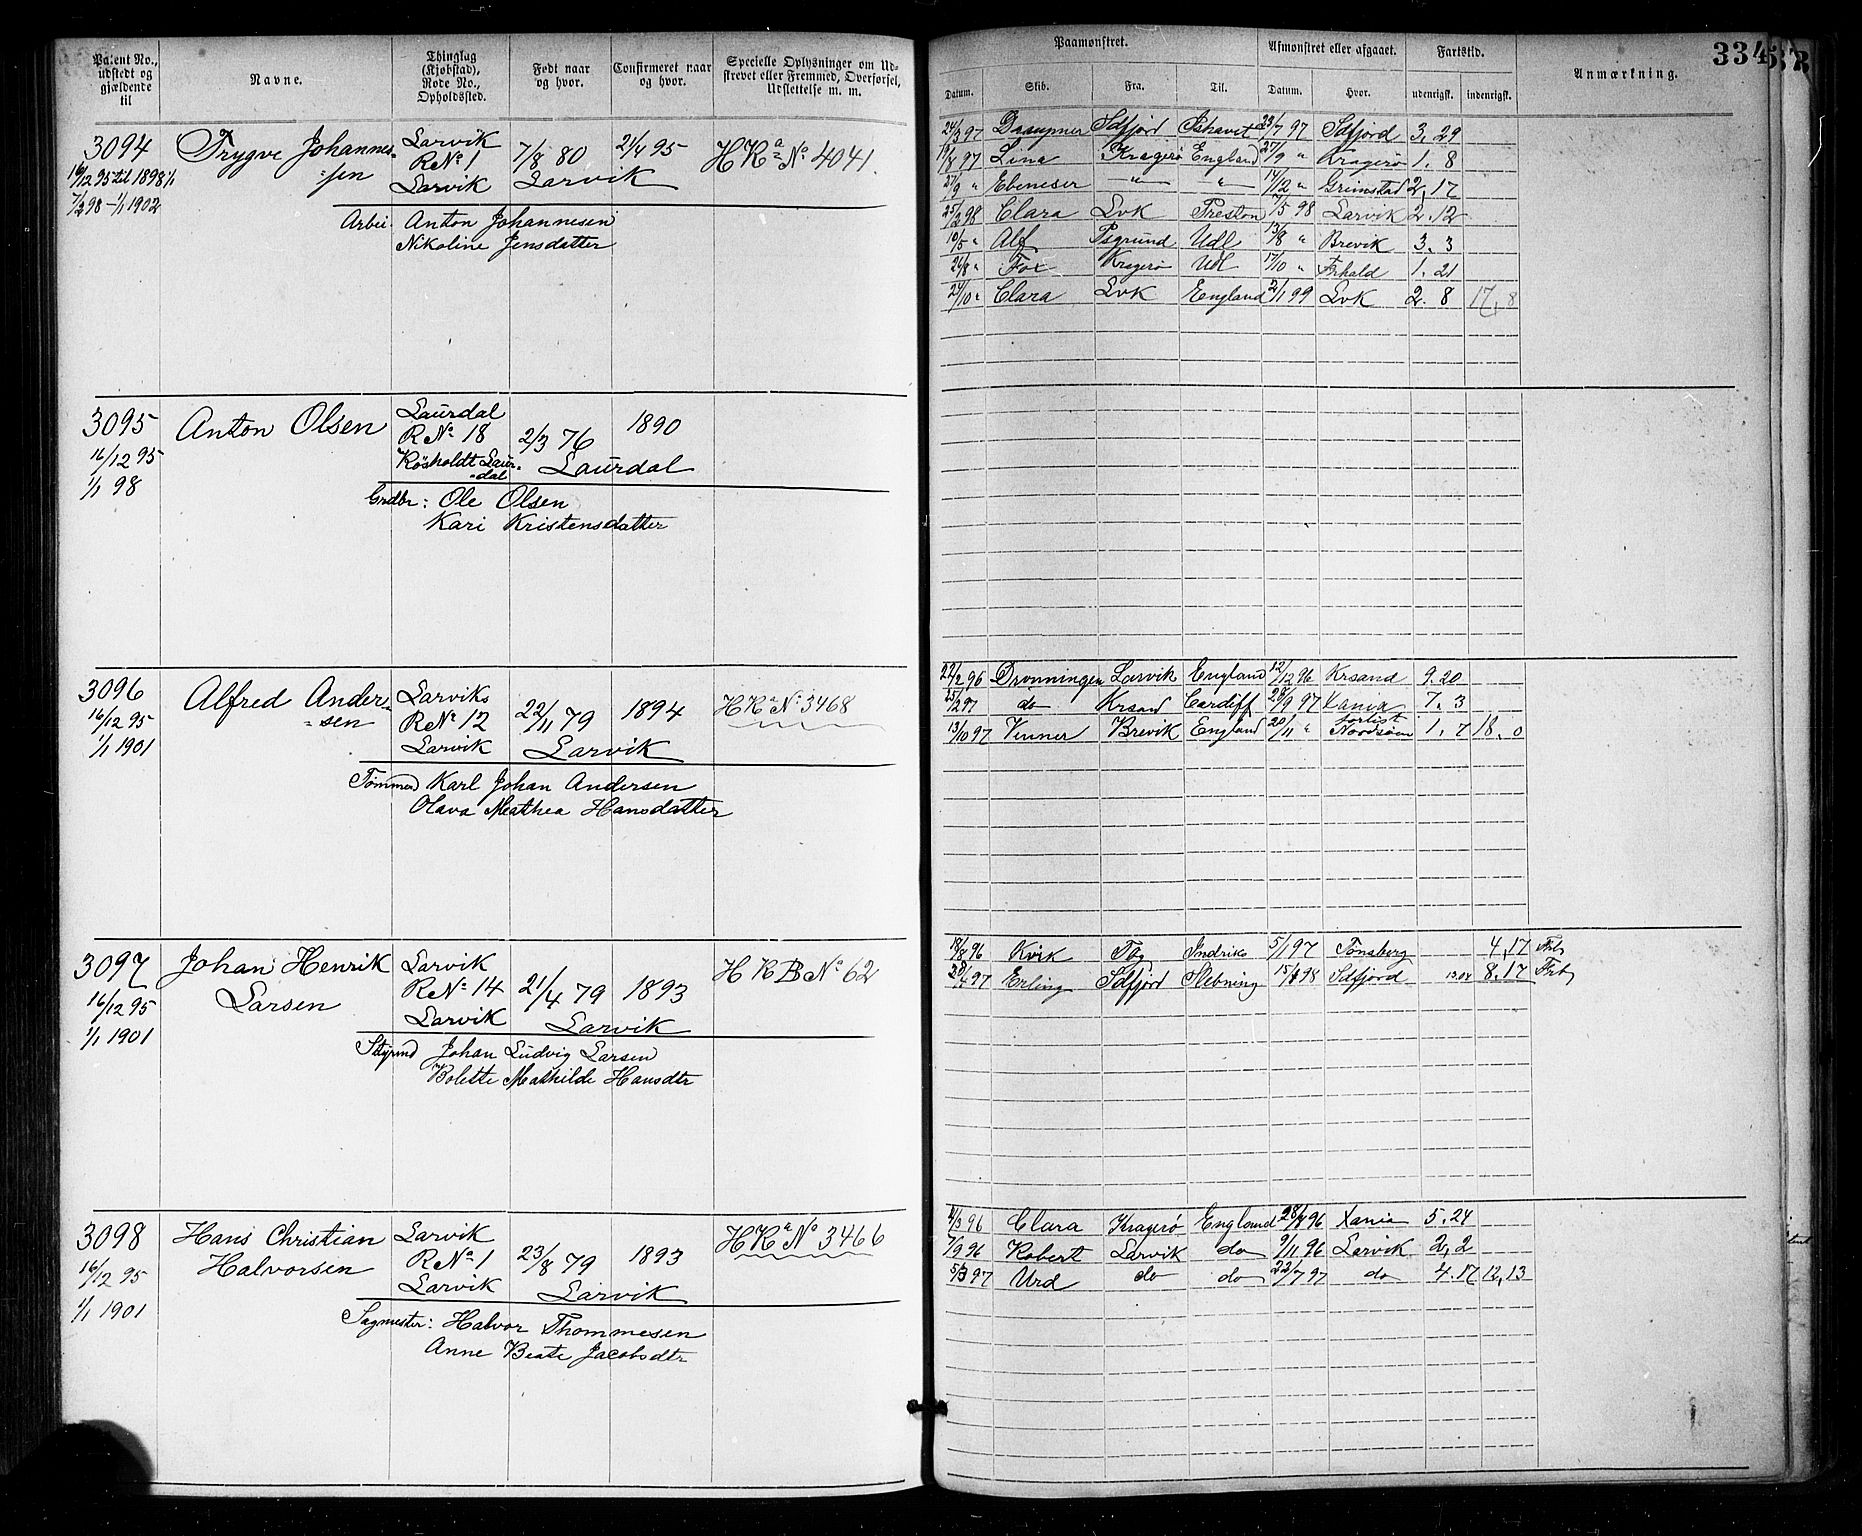 Patent No., udstedt og gjældende til
Navne.
Thinglag (Kjøbstad), Rode No., Opholdssted.
Født naar og hvor.
Confirmeret naar og hvor.
Specielle Oplysninger om Udskrevet eller Fremmed, Overførsel, Udslettelse m. m.
3094
16/12 95 til 1898 1/1
7/2 98 - 1/1 1902
Trygve Johannes-
sen
Larvik
R No 1
Larvik
7/8 80
Larvik
21/4 95
H K a No 4041.
Arbei. Anton Johannesen
Nikoline Jensdatter
3095
16/12 95
1/1 98
Anton Olsen
Laurdal
R No 18
Røsholdt Laur-
dal
2/3 76
Laurdal
1890
Grdbr: Ole Olsen
Kari Kristensdatter
3096
16/12 95
1/1 1901
Alfred Ander-
sen
Larviks
R No 12
Larvik
22/11 79
Larvik
1894
H K a No 3468
Tømmerm Karl Johan Andersen
Olava Mathea Hansdatter
3097
16/12 95
1/1 1901
Johan Henrik
Larsen
Larvik
R No 14
Larvik
21/4 79
Larvik
1893
H K B No 62
Styrmd Johan Ludvig Larsen
Bolette Mathilde Hansdtr
3098
16/12 95
1/1 1901
Hans Christian
Halvorsen
Larvik
R No 1
Larvik
23/8 79
Larvik
1893
H K a No 3466
Sagmester: Halvor Thommesen
Anne Beate Jacobsdtr
334
Paamønstret.
Afmønstret eller afgaaet.
Fartstid.
Anmærkning.
Datum. Skib. Fra. Til. Datum. Hvor. udenrigsk. indenrigsk.
24/3 97 Draupner Sdfjord Ishavet 23/7 97 Sdfjord 3. 29
19/8 97 Lina Kragerø England 27/9 " Kragerø 1. 8
27/9 " Ebeneser — " — — " — 14/12 " Grimstad 2. 17
25/2 98 Clara Lvk Preston 7/5 98 Larvik 2. 12
10/5 " Alf Psgrund Udl 13/8 " Brevik 3. 3
26/8 " Fox Kragerø Udl 17/10 " Frhald 1. 21
24/10 " Clara Lvk England 2/1 99 Lvk 2. 8 17, 8
22/2 96 Dronningen Larvik England 12/12 96 Krsand 9. 20
25/2 97 do Krsand Cardiff 28/9 97 Xania 7. 3
13/10 97 Venner Brevik England 20/11 " forlist Nordsøen 1. 7 18. 0
18/8 96 Kvik Tbg Indriks 5/1 97 Tønsberg 4, 17
20/4 97 Erling Sdfjord 15/1 98 Sdfjord 8. 17
4/3 96 Clara Kragerø England 28/8 96 Xania 5. 24
7/9 96 Robert Larvik do 9/11 96 Larvik 2, 2
5/3 97 Urd do do 22/7 97 do 4. 17 12, 13